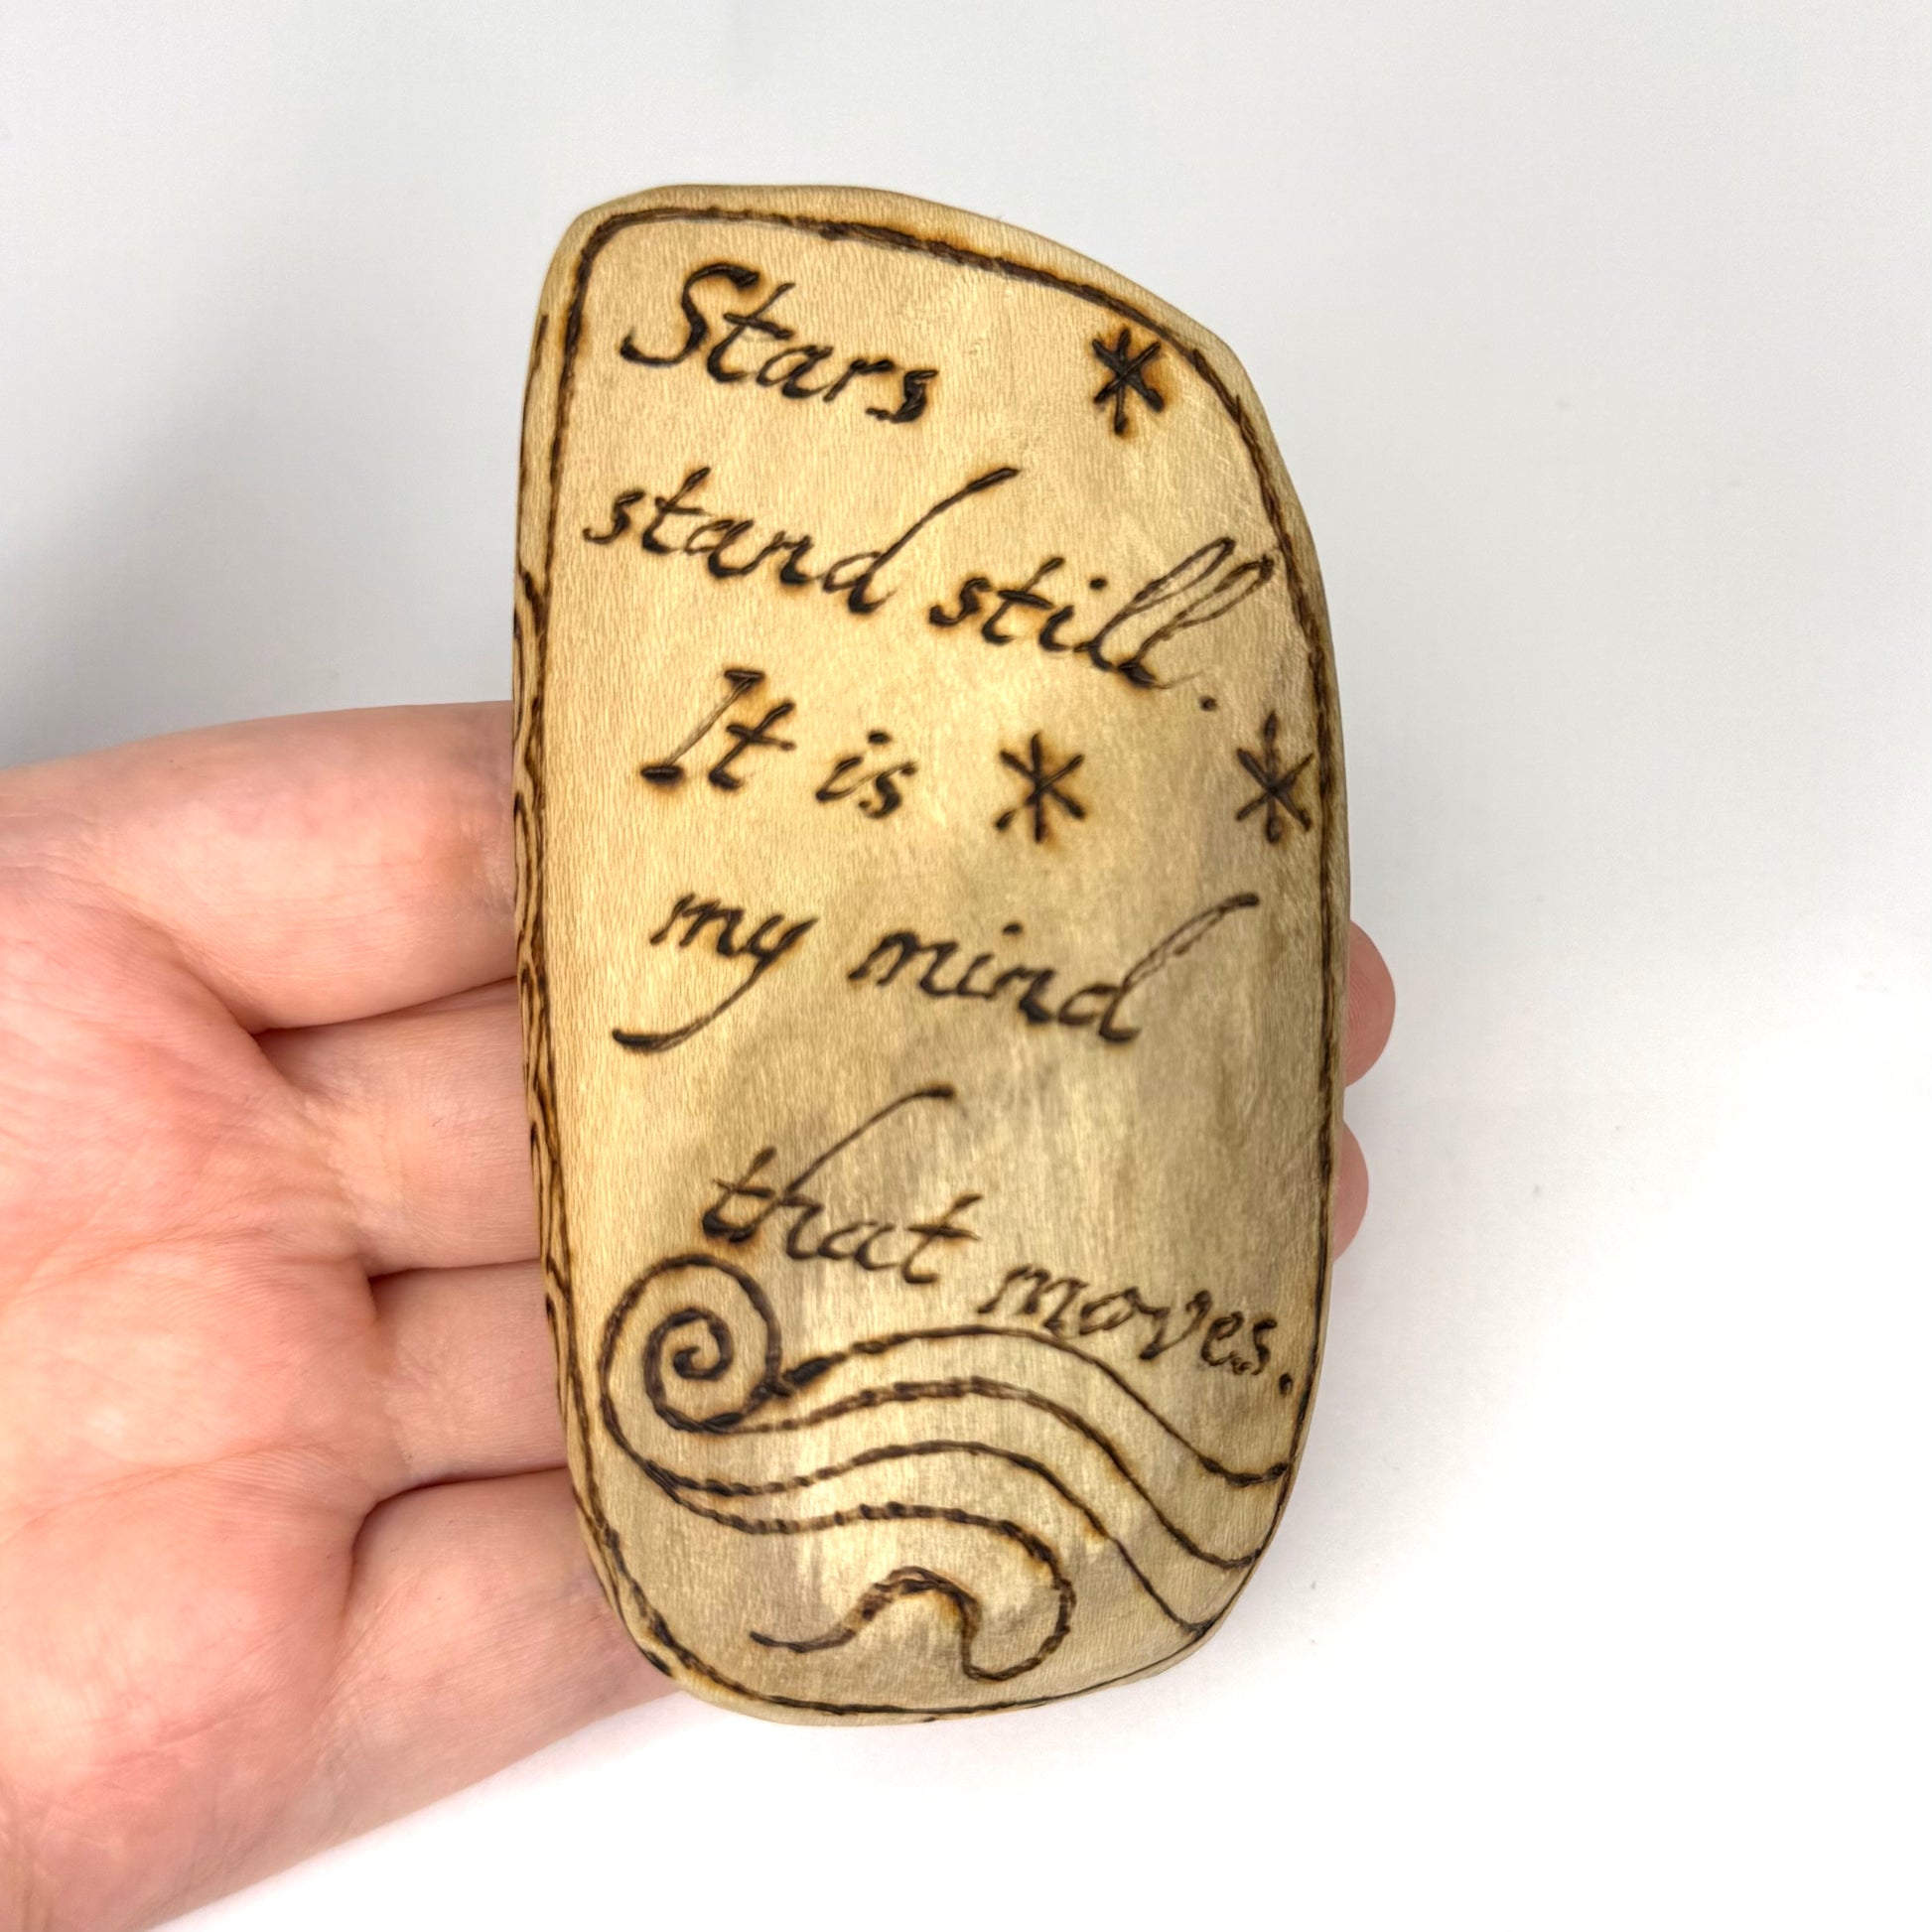 Stars
stand still.
It is
my mind
that moves.